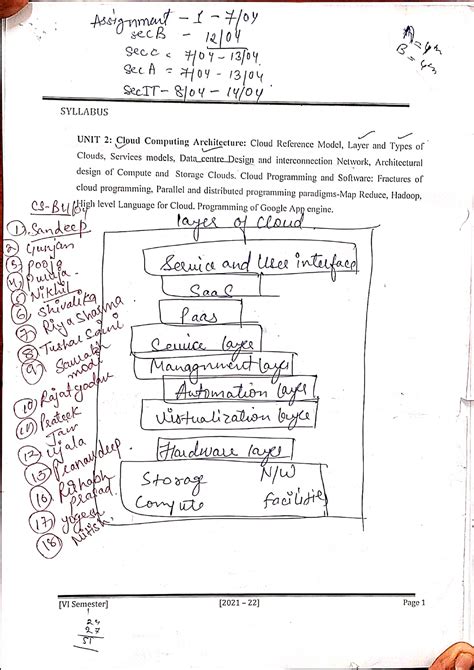 Assignment - 1 - 7/04
sec B - 12/04
Sec C = 7/04 - 13/04
Sec A = 7/04 - 13/04
Sec IT - 8/04 - 14/04
SYLLABUS
UNIT 2: Cloud Computing Architecture: Cloud Reference Model, Layer and Types of
Clouds, Services models, Data centre Design and interconnection Network, Architectural
design of Compute and Storage Clouds. Cloud Programming and Software: Fractures of
cloud programming, Parallel and distributed programming paradigms-Map Reduce, Hadoop,
High level Language for Cloud. Programming of Google App engine.
layer of Cloud
Service and User interface
SaaS
Paas
Service layer
Managnment layer
Automation layer
Virtualization layer
Hardware layer
Storage N/W
Compute facilities
1 Sandeep
2 Gunjan
3 Pooja
4
5 Nikhil
6 Shivalika
7 Riya Sharma
8 Tushar Saini
9 Saurabh
modi
10 Rajat yadav
11 Prateek
12 Ujala
15 Pranavdeep
16 Rishabh
Prasad
17 yogesh
18 Nitish
[VI Semester] [2021 – 22] Page 1
24
27
51